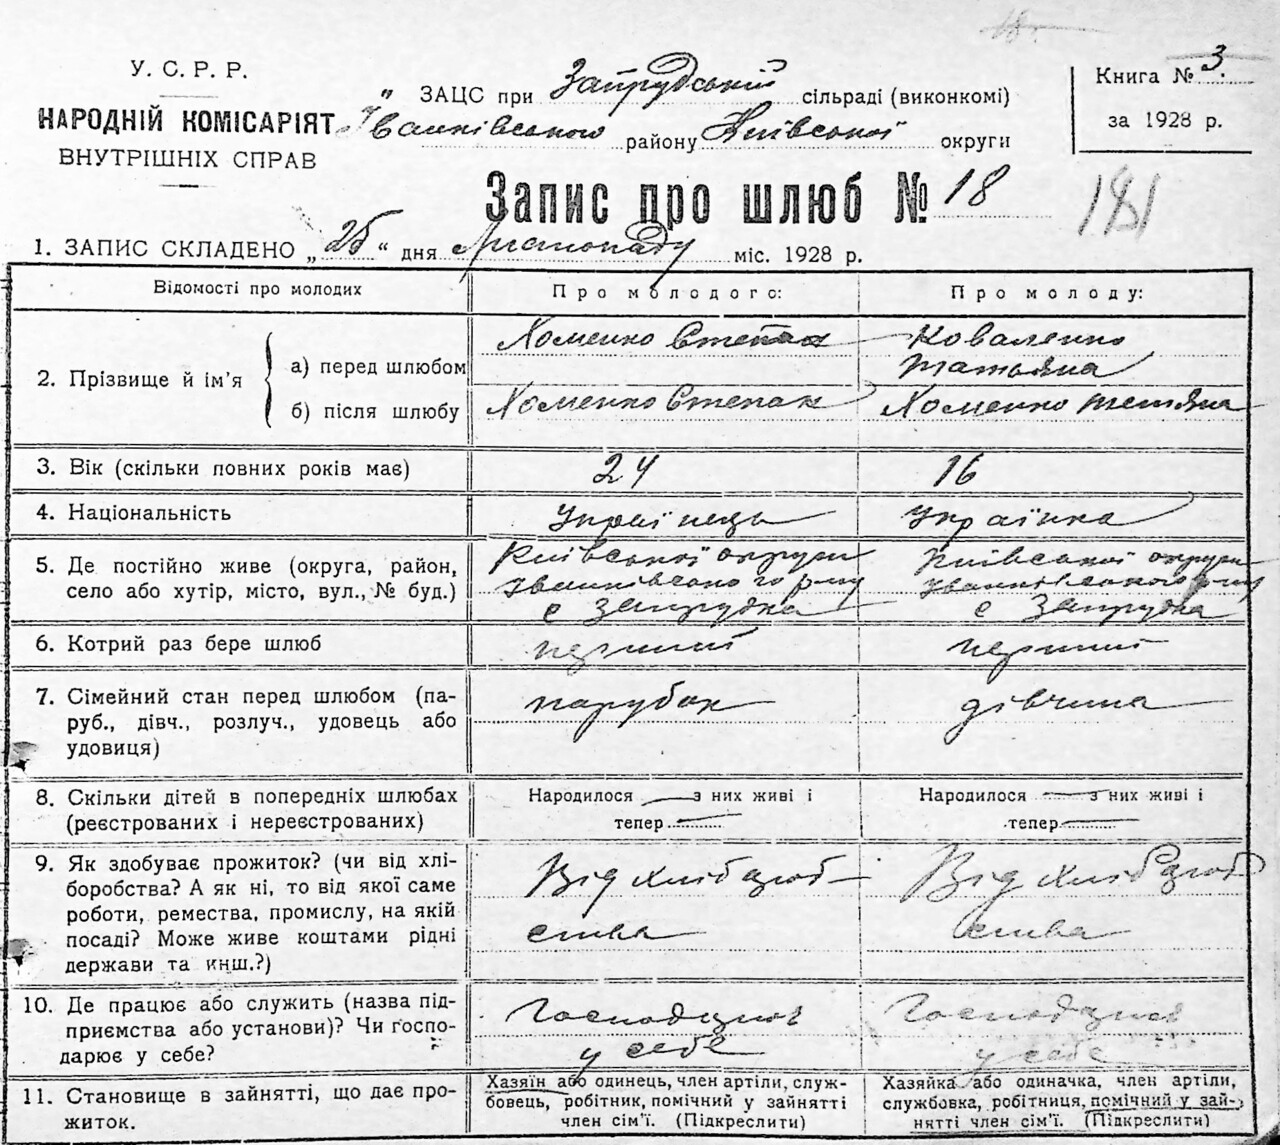 У. С. Р. Р.
НАРОДНІЙ КОМІСАРІЯТ
ВНУТРІШНІХ СПРАВ
„ ЗАЦС при Запрудській сільраді (виконкомі)
Іванківського району Київської округи
Книга № 3.
за 1928 р.
Запис про шлюб № 18
181
1. ЗАПИС СКЛАДЕНО „25“ дня Листопаду міс. 1928 р.
Відомості про молодих
Про молодого:
Про молоду:
2. Прізвище й ім’я
а) перед шлюбом
Хоменко Степан
Коваленко
Татьяна
б) після шлюбу
Хоменко Степан
Хоменко Тетяна
3. Вік (скільки повних років має)
24
16
4. Національність
Українець
Українка
5. Де постійно живе (округа, район,
село або хутір, місто, вул., № буд.)
Київської округи
Іванківського р-ну
с Запрудка
Київської округи
Іванківського р-ну
с Запрудка
6. Котрий раз бере шлюб
перший
перший
7. Сімейний стан перед шлюбом (па-
руб., дівч., розлуч., удовець або
удовиця)
парубок
дівчина
8. Скільки дітей в попередніх шлюбах
(реєстрованих і нереєстрованих)
Народилося — з них живі і
тепер —
Народилося — з них живі і
тепер —
9. Як здобуває прожиток? (чи від хлі-
боробства? А як ні, то від якої саме
роботи, ремества, промислу, на якій
посаді? Може живе коштами рідні
держави та инш.?)
Від хлібороб
ства
Від хлібороб
ства
10. Де працює або служить (назва під-
приємства або установи)? Чи госпо-
дарює у себе?
у себе
у себе
11. Становище в зайнятті, що дає про-
житок.
Хазяїн або одинець, член артіли, служ-
бовець, робітник, помічний у зайнятті
член сім’ї. (Підкреслити)
Хазяйка або одиначка, член артіли,
службовка, робітниця, помічний у зай-
нятті член сім’ї. (Підкреслити)